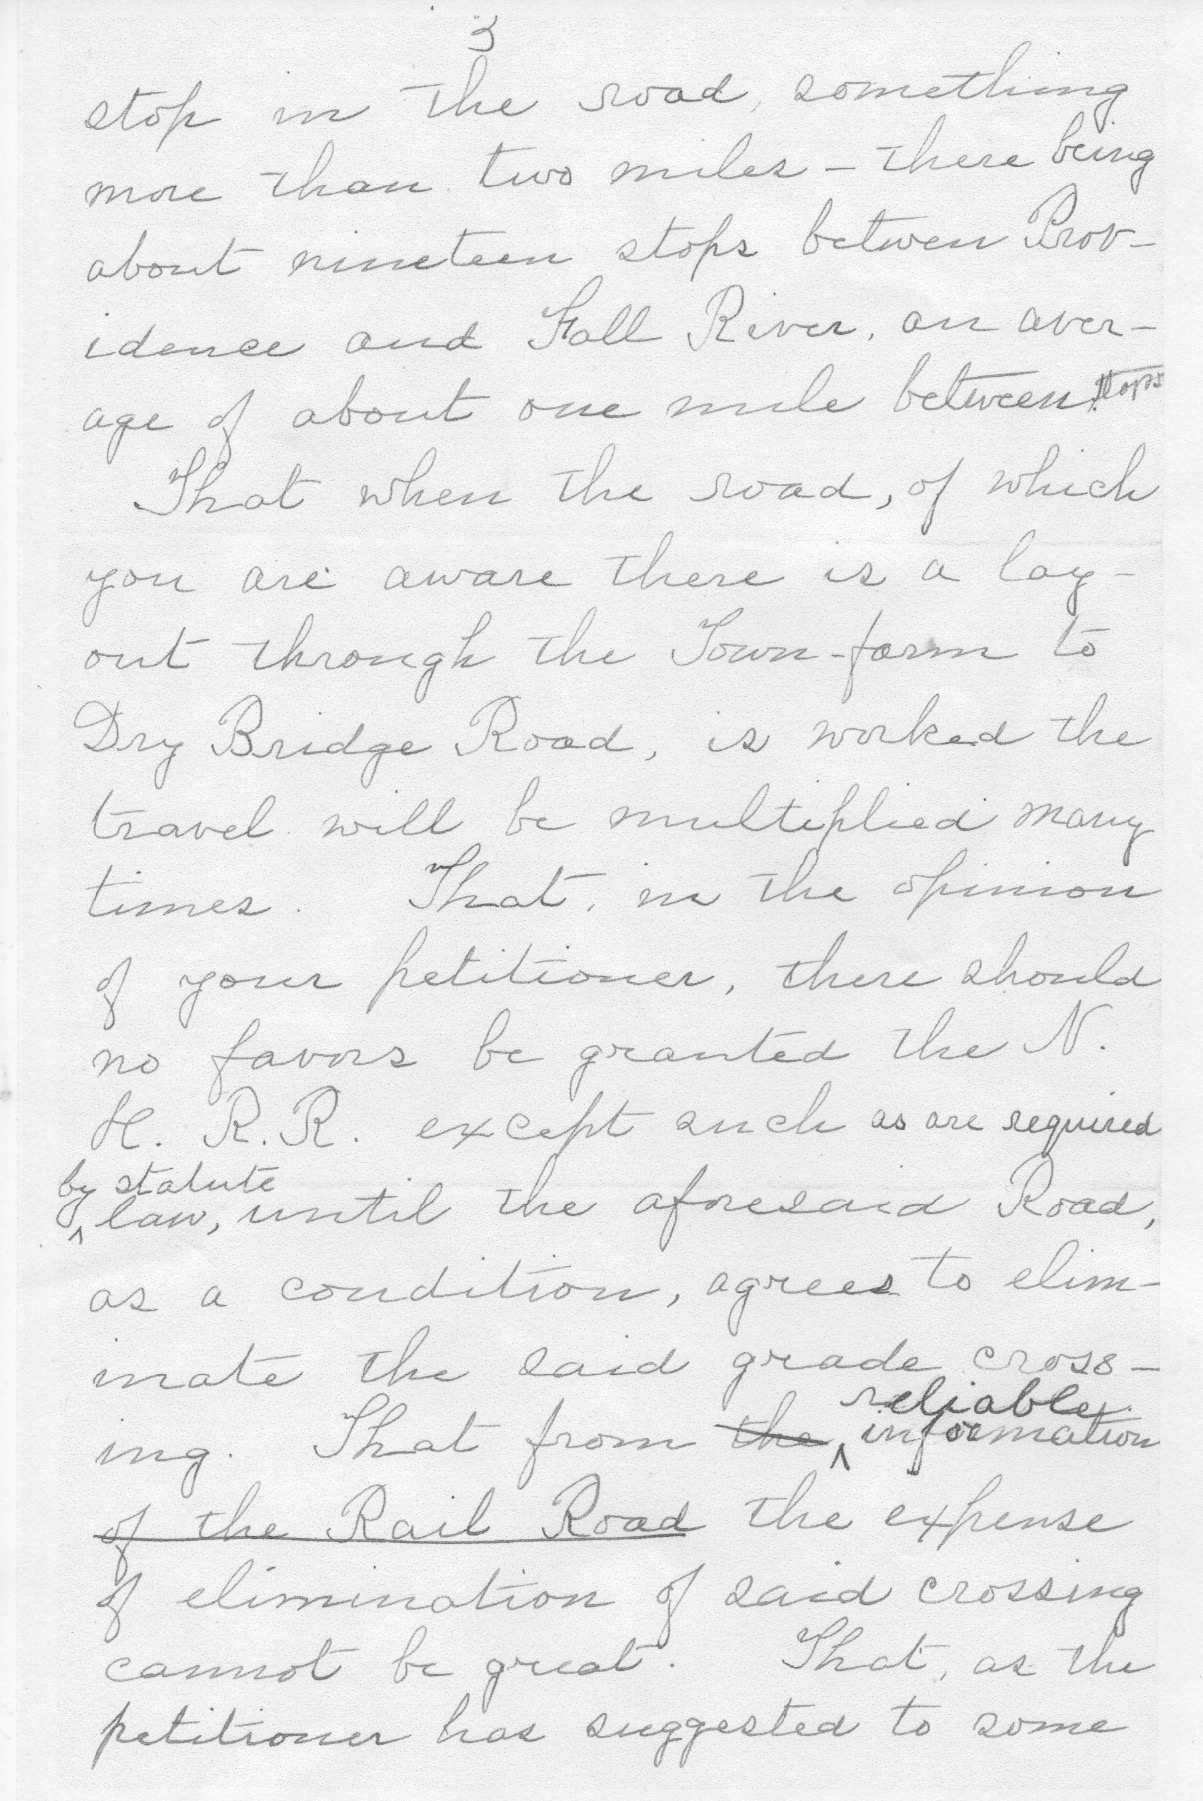 3
stop in the road, something
more than two miles – there being
about nineteen stops betwen Prov-
idence and Fall River, an aver-
age of about one mile between stops.
That when the road, of which
you are aware there is a lay-
out through the Town-farm to
Dry Bridge Road, is worked the
travel will be multiplied many
times. That, in the opinion
of your petitioner, there should
no favors be granted the N.
H. R.R. except such as are required
by statute
law, until the aforesaid Road,
as a condition, agrees to elim-
inate the said grade cross-
reliable
ing. That from the information
of the Rail Road the expense
of elimination of said crossing
cannot be great. That, as the
petitioner has suggested to some